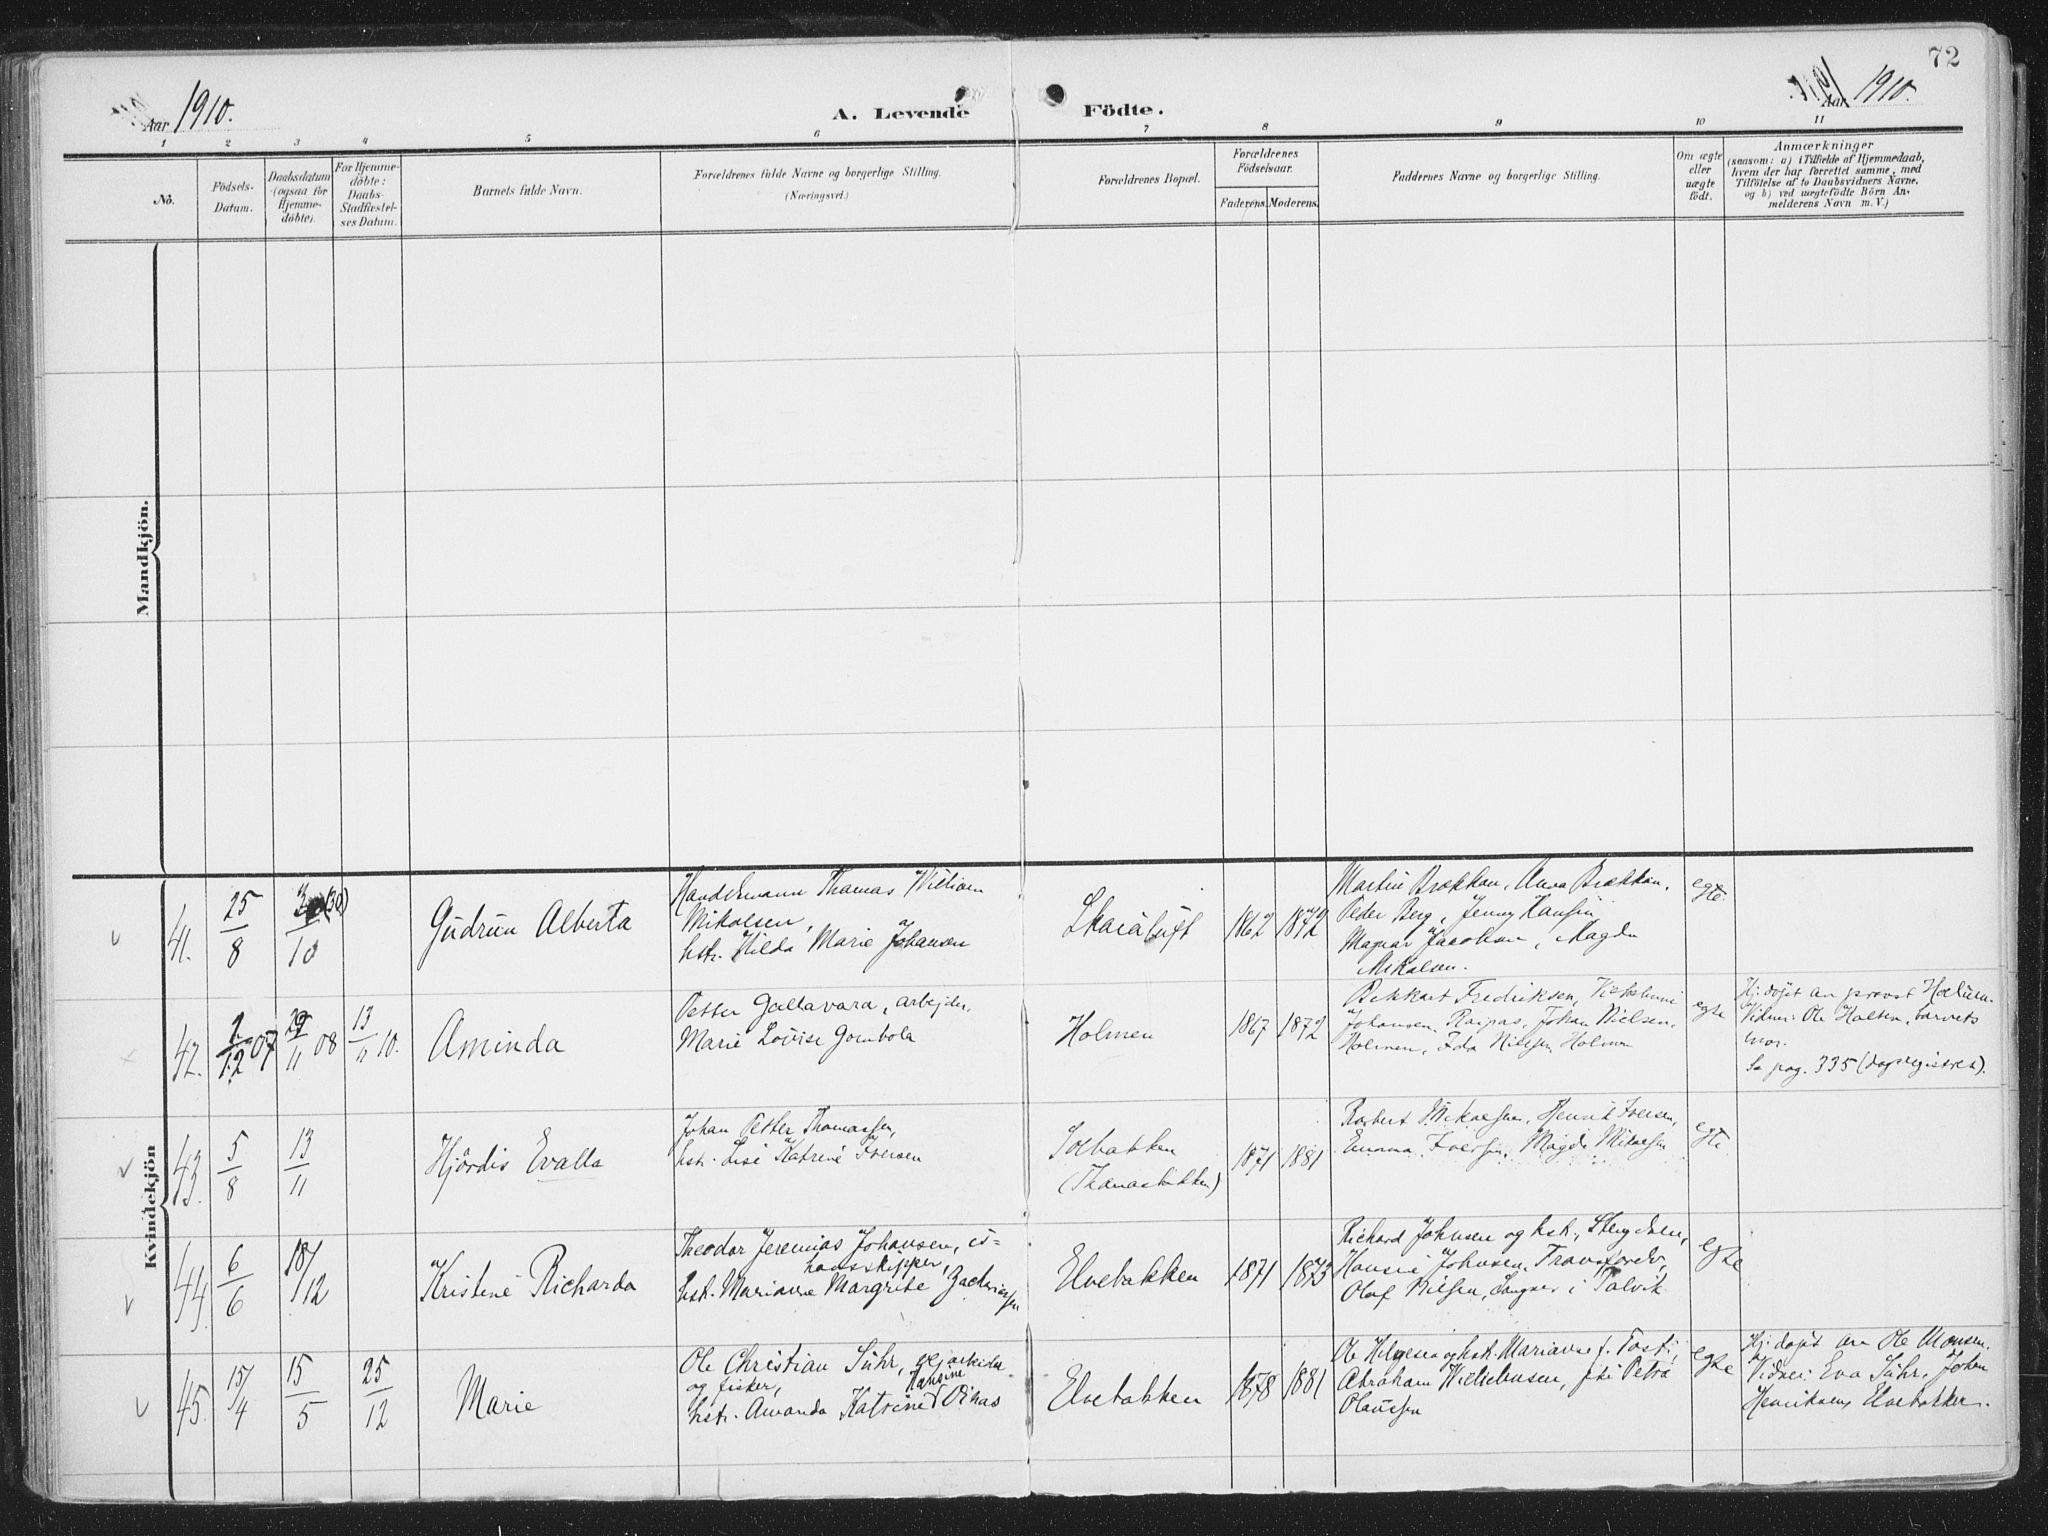 72
Aar 1910.
A. Levende Födte.
Aar 1910.
1 2 3 4 5 6 7 8 9 10 11
No.
Födsels-
Datum.
Daabsdatum
(ogsaa for
Hjemme-
döbte).
For Hjemme-
döbte:
Daabs-
Stadfæstel-
ses Datum.
Barnets fulde Navn.
Forældrenes fulde Navne og borgerlige Stilling.
(Næringsvei.)
Forældrenes Bopæl.
Forældrenes
Födselsaar.
Faderens. Moderens.
Faddernes Navne og borgerlige Stilling.
Om ægte
eller
uægte
födt.
Anmærkninger
(saasom: a) i Tilfælde af Hjemmedaab,
hvem der har forrettet samme, med
Tilföielse af to Daabsvidners Navne,
og b) ved uægtefödte Börn An-
melderens Navn m. V.)
Mandkjön.
Kvindekjön
41.
25/8
(30)
10
Gudrun Alberta
Handelsmann Thomas William
Mikalsen,
hstr. Hilda Marie Johansen
1862 1872
Martin Brækkan, Anna Brækkan,
Peder Berg, Jenny Hansen
Magnar Jacobsen, Magda
Mikalsen.
egte.
42.
12 07
11 08
13/11 10.
Aminda
Petter Gallavara, arbejder,
Marie Lovise Gombola
Holmen
1867 1872
Fredriksen,
Johansen, Raipas, Johan Nielsen,
Holmen, Ida Nilssen Holmen
egte
Hj. døpt av provst
Vidner: Ole Holten, barnets
mor.
Se pag. 335 (dopsregistret).
43.
5/8
13/11
Hjördis Evalla
Johan Petter Thomassen,
hstr. Lise Katrine Iversen
Solbakken
(Thomasbakken)
1871 1881
Robert Mikalsen, Henrik Iversen,
Emma Iversen, Magda Mikalsen
egte
44.
6/6
18/12
Kristine Richarda
Theodor Jeremias Johansen, is-
havsskipper,
hstr. Marianne Margrete Zachriassen
Elvebakken
1871 1873
Richard Johnsen og hst.,
Hansine Johnsen,
Olaf Nilsen, i Talvik
egte
45.
15/4
15/5
25/12
Marie
Ole Christian Suhr,
og fisker, Hansine
hstr. Amanda Katrine Oinas
Elvebakken
1878 1881
Ole og hst. Marianne f. Tosti,
Abraham Wilhelmsen, Petra
Olaussen
egte
Hj. døpt av Ole Monsen.
Vidner: Eva Suhr, Johan
Henriksen, Elvebakken.